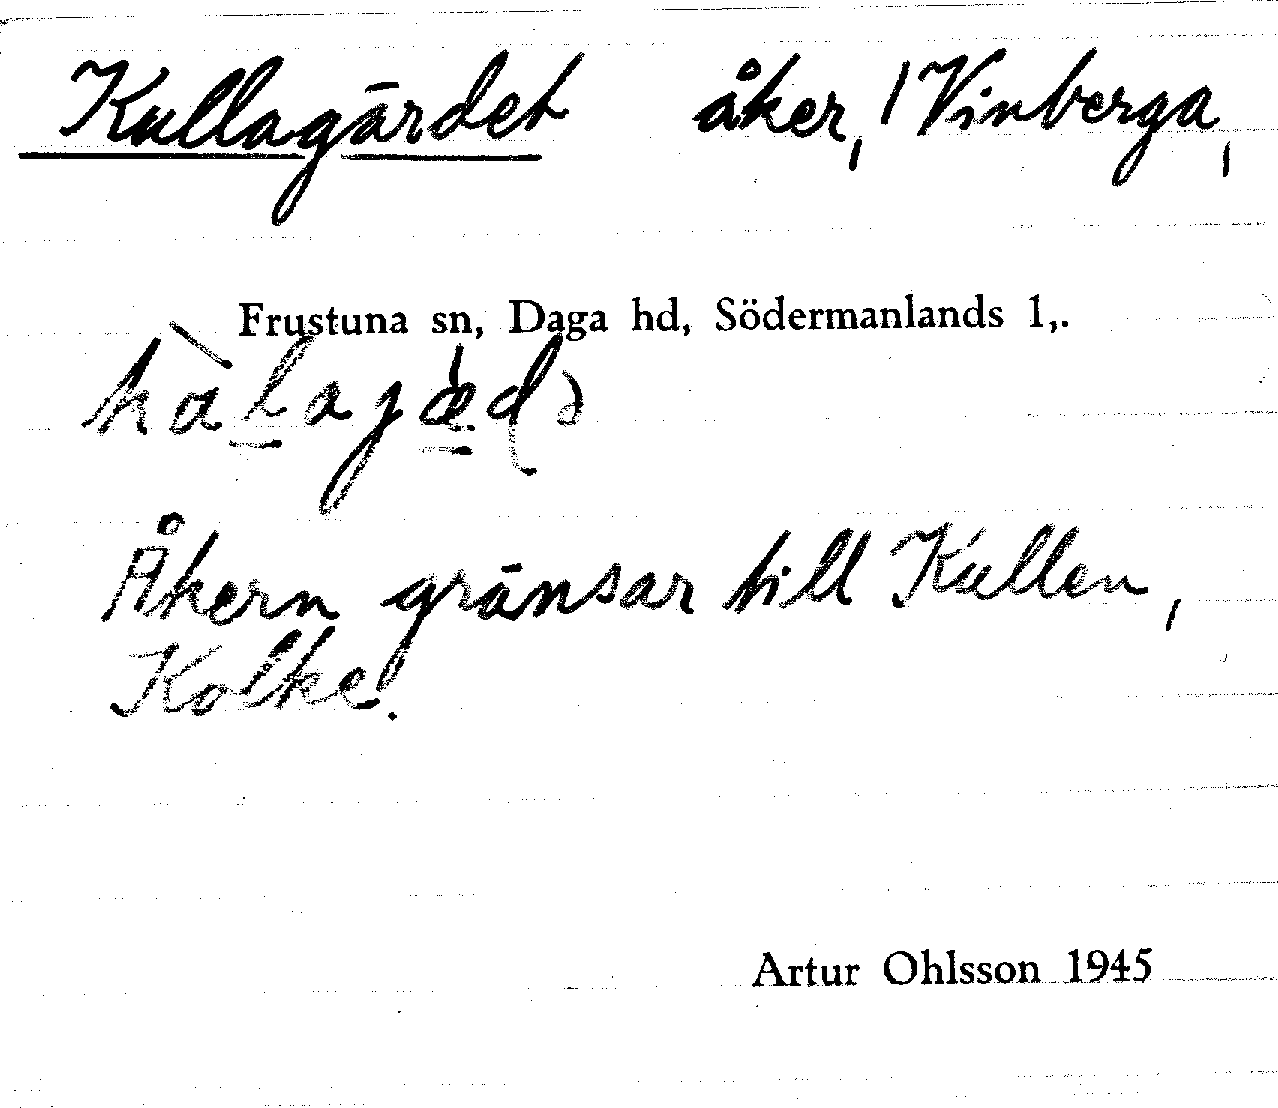 Kullagärdet åker, 1 Vinberga,
Frustuna sn, Daga hd, Södermanlands l,.
Åkern gränsar till Kullen,
Kolke.
Artur Ohlsson 1945